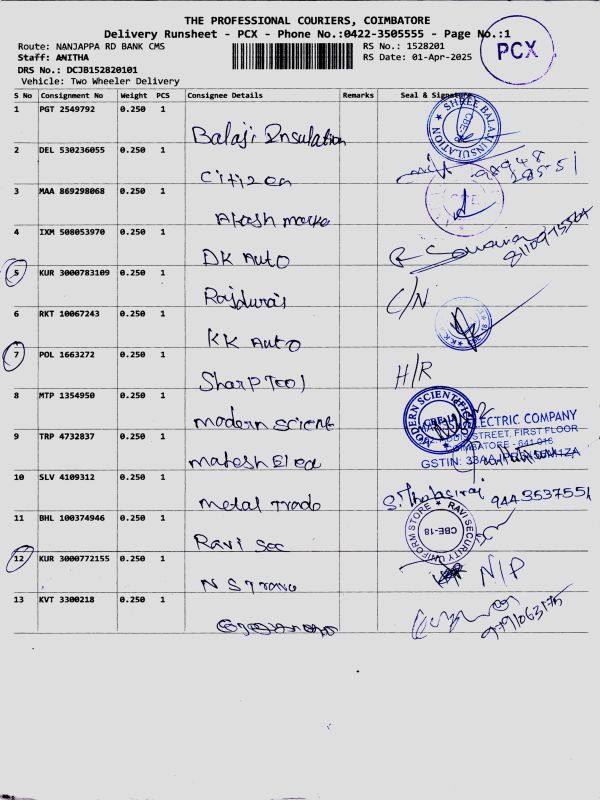 THE PROFESSIONAL COURIERS, COIMBATORE
Delivery Runsheet - PCX - Phone No.:0422-3505555 - Page No.:1
Route: NANJAPPA RD BANK CMS
RS No.: 1528201
PCX
Staff: ANITHA
RS Date: 01-Apr-2025
DRS No.: DCJB152820101
Vehicle: Two Wheeler Delivery
S No Consignment No Weight PCS Consignee Details Remarks Seal & Signature
1 PGT 2549792 0.250 1 Balaji Insulation
SHREE BALAJI INSULATION
CBE-18
2 DEL 530236055 0.250 1 Citizen
3 MAA 869298068 0.250 1 Akash marke
4 IXM 508053970 0.250 1 DK Auto
5 KUR 3000783109 0.250 1 Rajdurai C/N
6 RKT 10067243 0.250 1 KK Auto
7 POL 1663272 0.250 1 Sharp Tool H/R
8 MTP 1354950 0.250 1 modern scient
MODERN SCIENTIFIC
CBE-18
ELECTRIC COMPANY
STREET, FIRST FLOOR
COIMBATORE - 641 018
9 TRP 4732837 0.250 1 mahesh Elec
GSTIN:
10 SLV 4109312 0.250 1 metal Trade
9443537551
11 BHL 100374946 0.250 1 Ravi sec
RAVI SECURITY UNIFORM STORE
CBE-18
12 KUR 3000772155 0.250 1 N S Trans N/P
13 KVT 3300218 0.250 1
9791063175